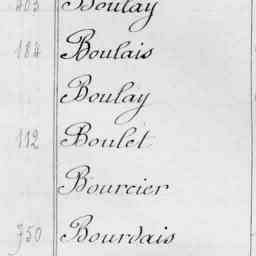 403 Boulay
184 Boulais
Boulay
112 Boulet
Bourcier
750 Bourdais